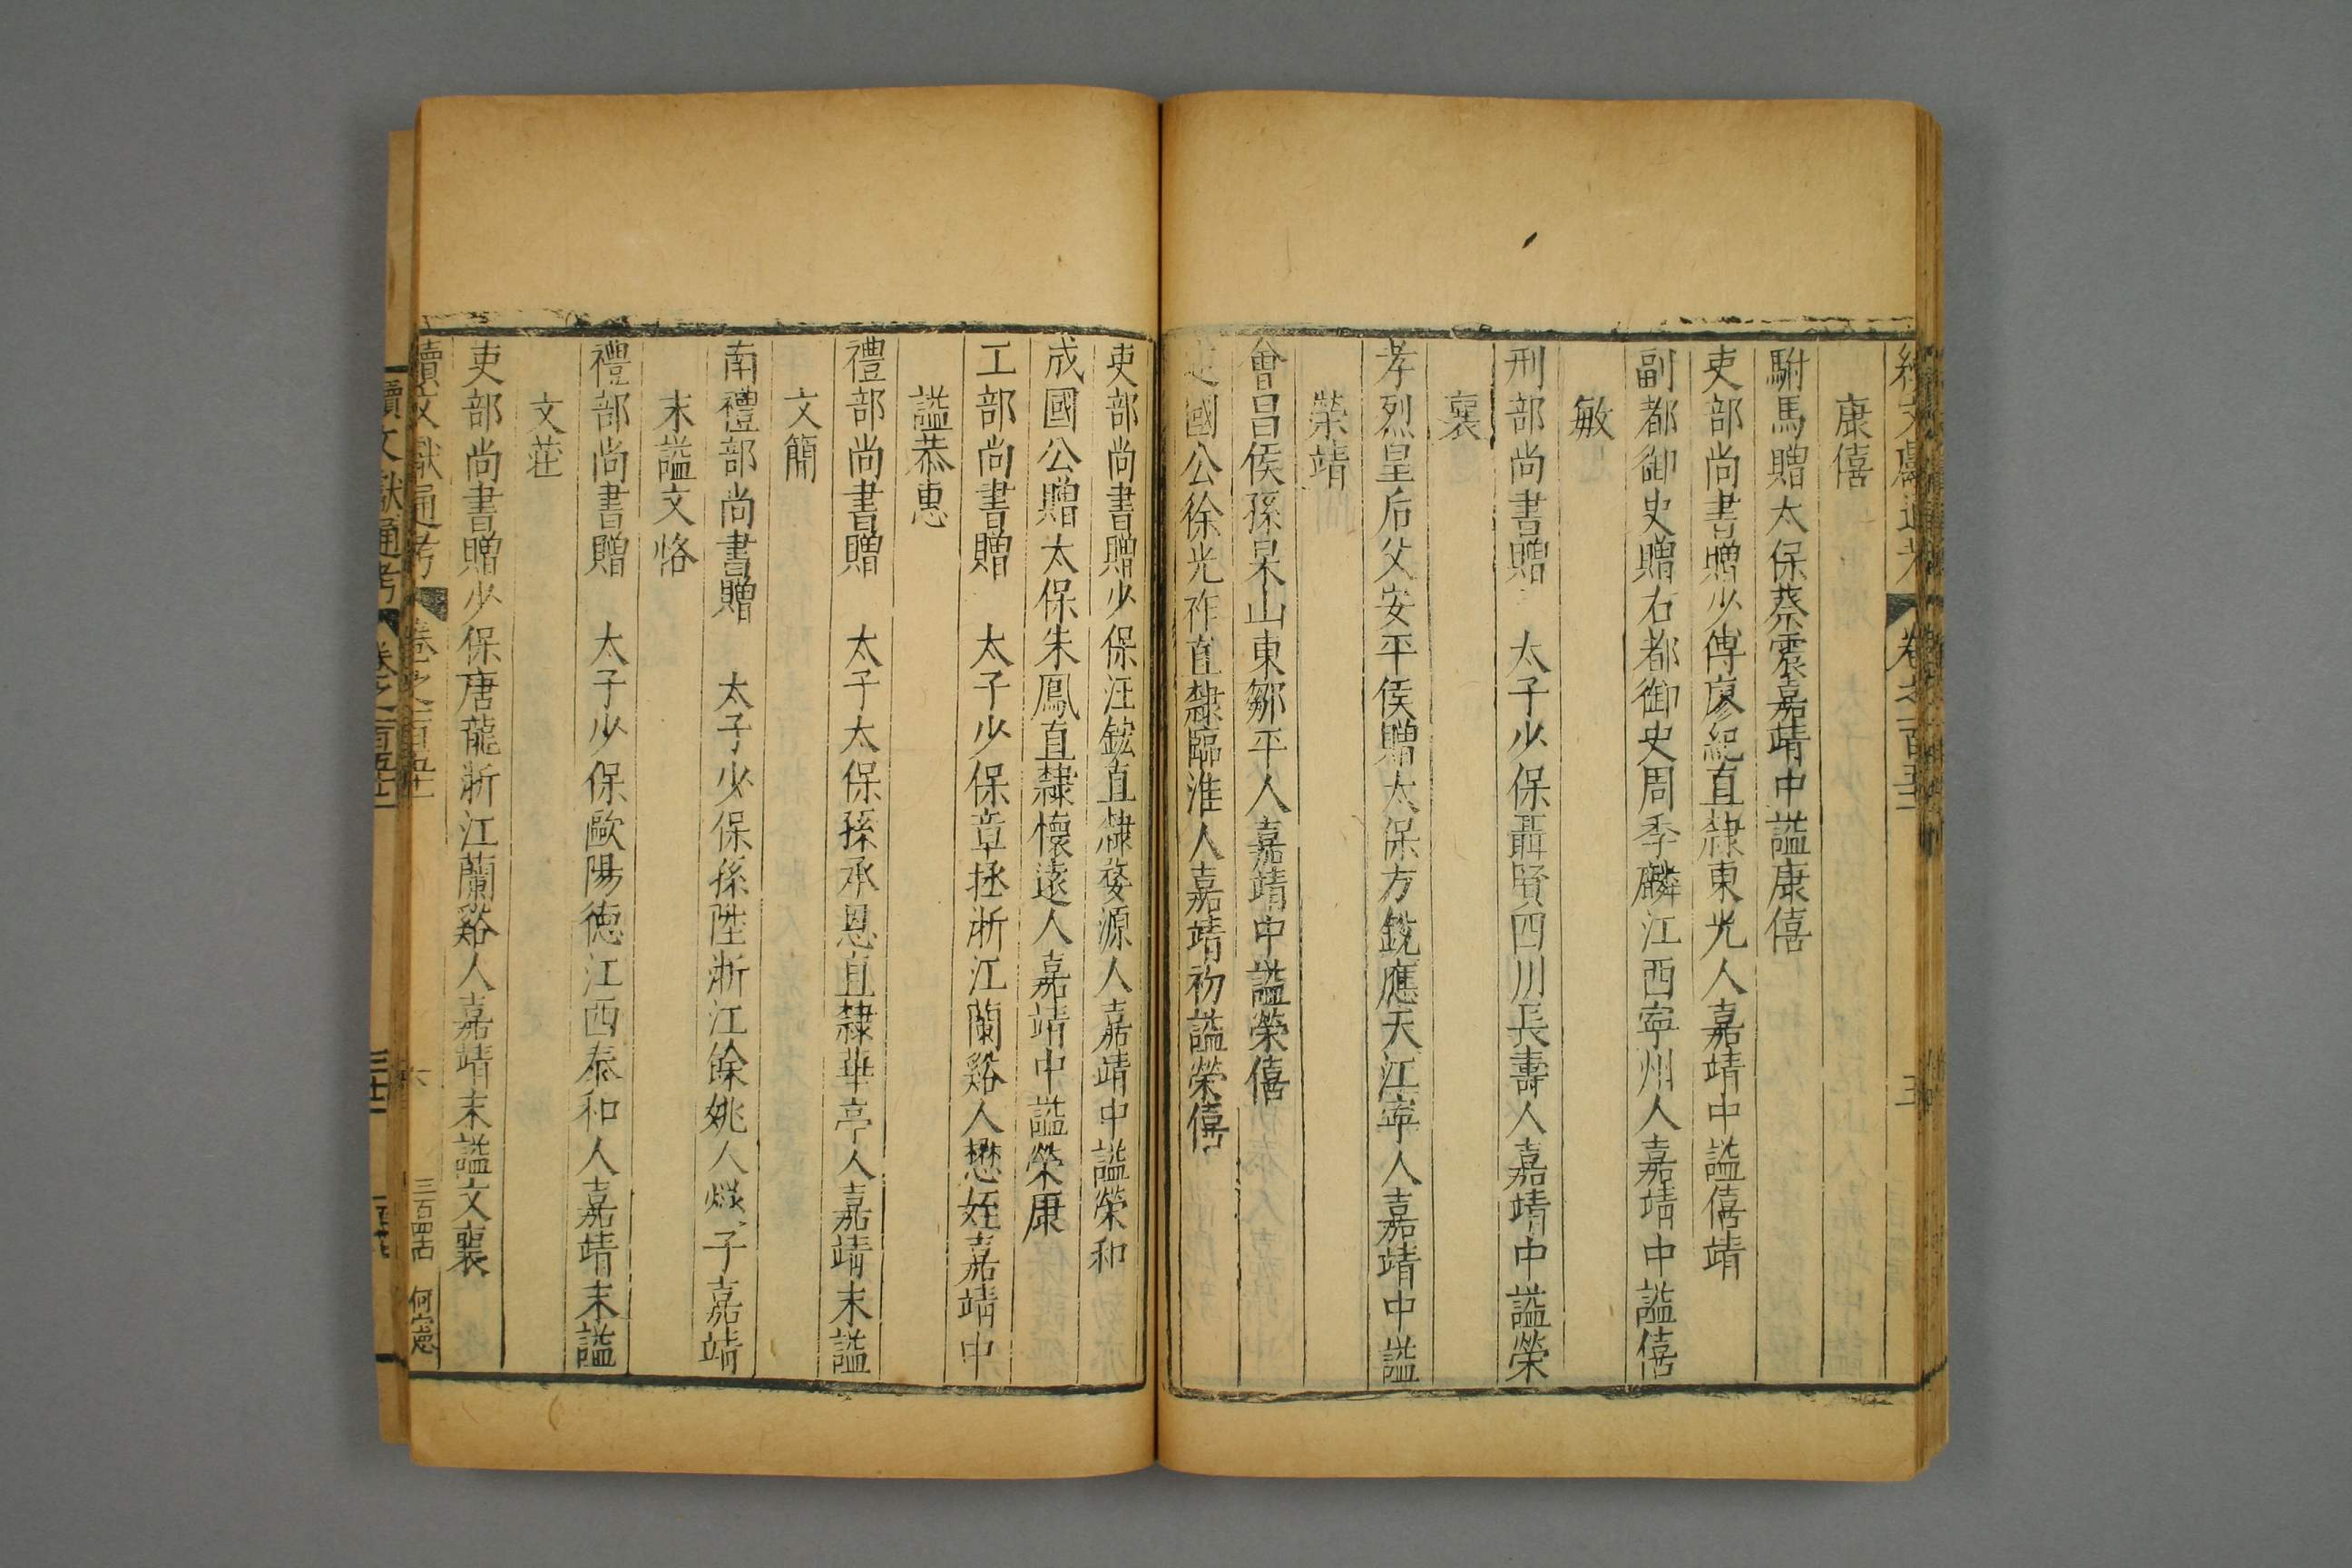 康僖
駙馬贈太保蔡震嘉靖中謚康僖
吏部尚書贈少傅廖紀直隸東光人嘉靖中謚僖靖
副都御史贈右都御史周季麟江西寧州人嘉靖中謚僖
敏
刑部尚書贈 太子少保聶賢四川長壽人嘉靖中謚榮
襄
孝烈皇后父安平侯贈太保方銳應天江寧人嘉靖中謚
榮靖
會昌侯孫杲山東鄒平人嘉靖中謚榮僖
國公徐光祚直隸臨淮人嘉靖初謚榮僖
吏部尚書贈少保汪鋐直隸婺源人嘉靖中謚榮和
成國公贈太保朱鳳直隸懷遠人嘉靖中謚榮康
工部尚書贈 太子少保章拯浙江蘭谿人懋姪嘉靖中
謚恭惠
禮部尚書贈 太子太保孫承恩直隸華亭人嘉靖末謚
文簡
南禮部尚書贈 太子少保孫陞浙江餘姚人燧子嘉靖
末謚文恪
禮部尚書贈 太子少保歐陽德江西泰和人嘉靖末謚
文莊
吏部尚書贈少保唐龍浙江蘭谿人嘉靖末謚文襄
續文獻通考 卷之一百五十二